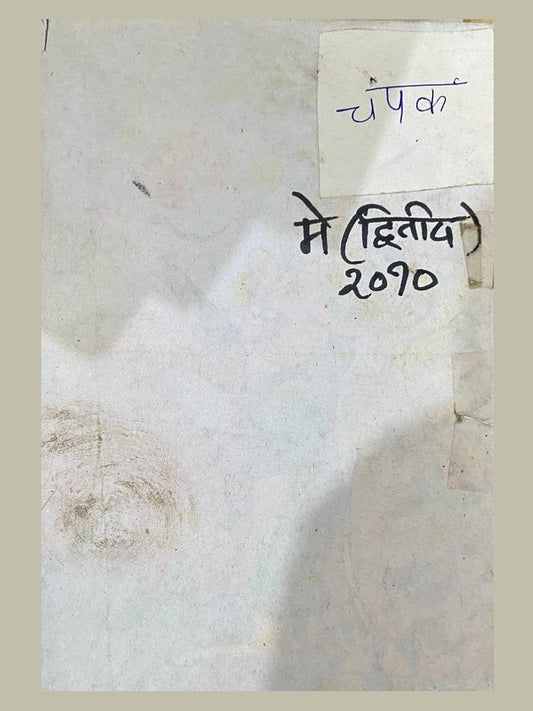 चंपक
मे (द्वितीय)
२०१०